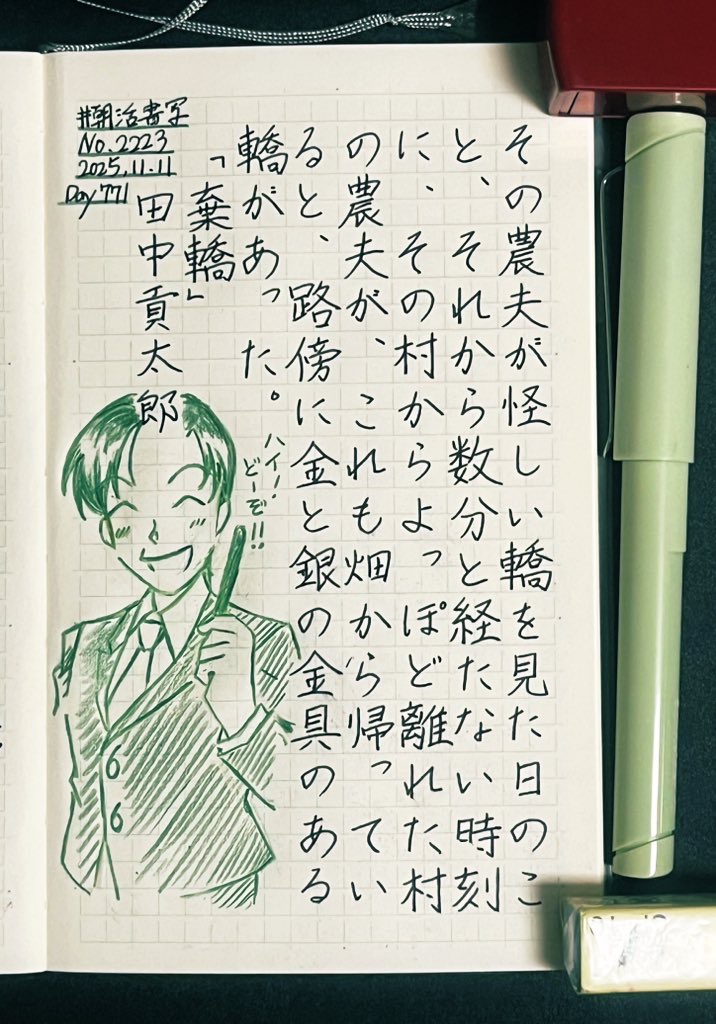 #朝活書写
No.2223
2025.11.11
Day 771
その農夫が怪しい轎を見た日のこ
と、それから数分と経たない時刻
に、その村からよっぽど離れた村
の農夫が、これも畑から帰ってい
ると、路傍に金と銀の金具のある
轎があった。
「棄轎」
田中貢太郎
ハイ!
どーぞ!!